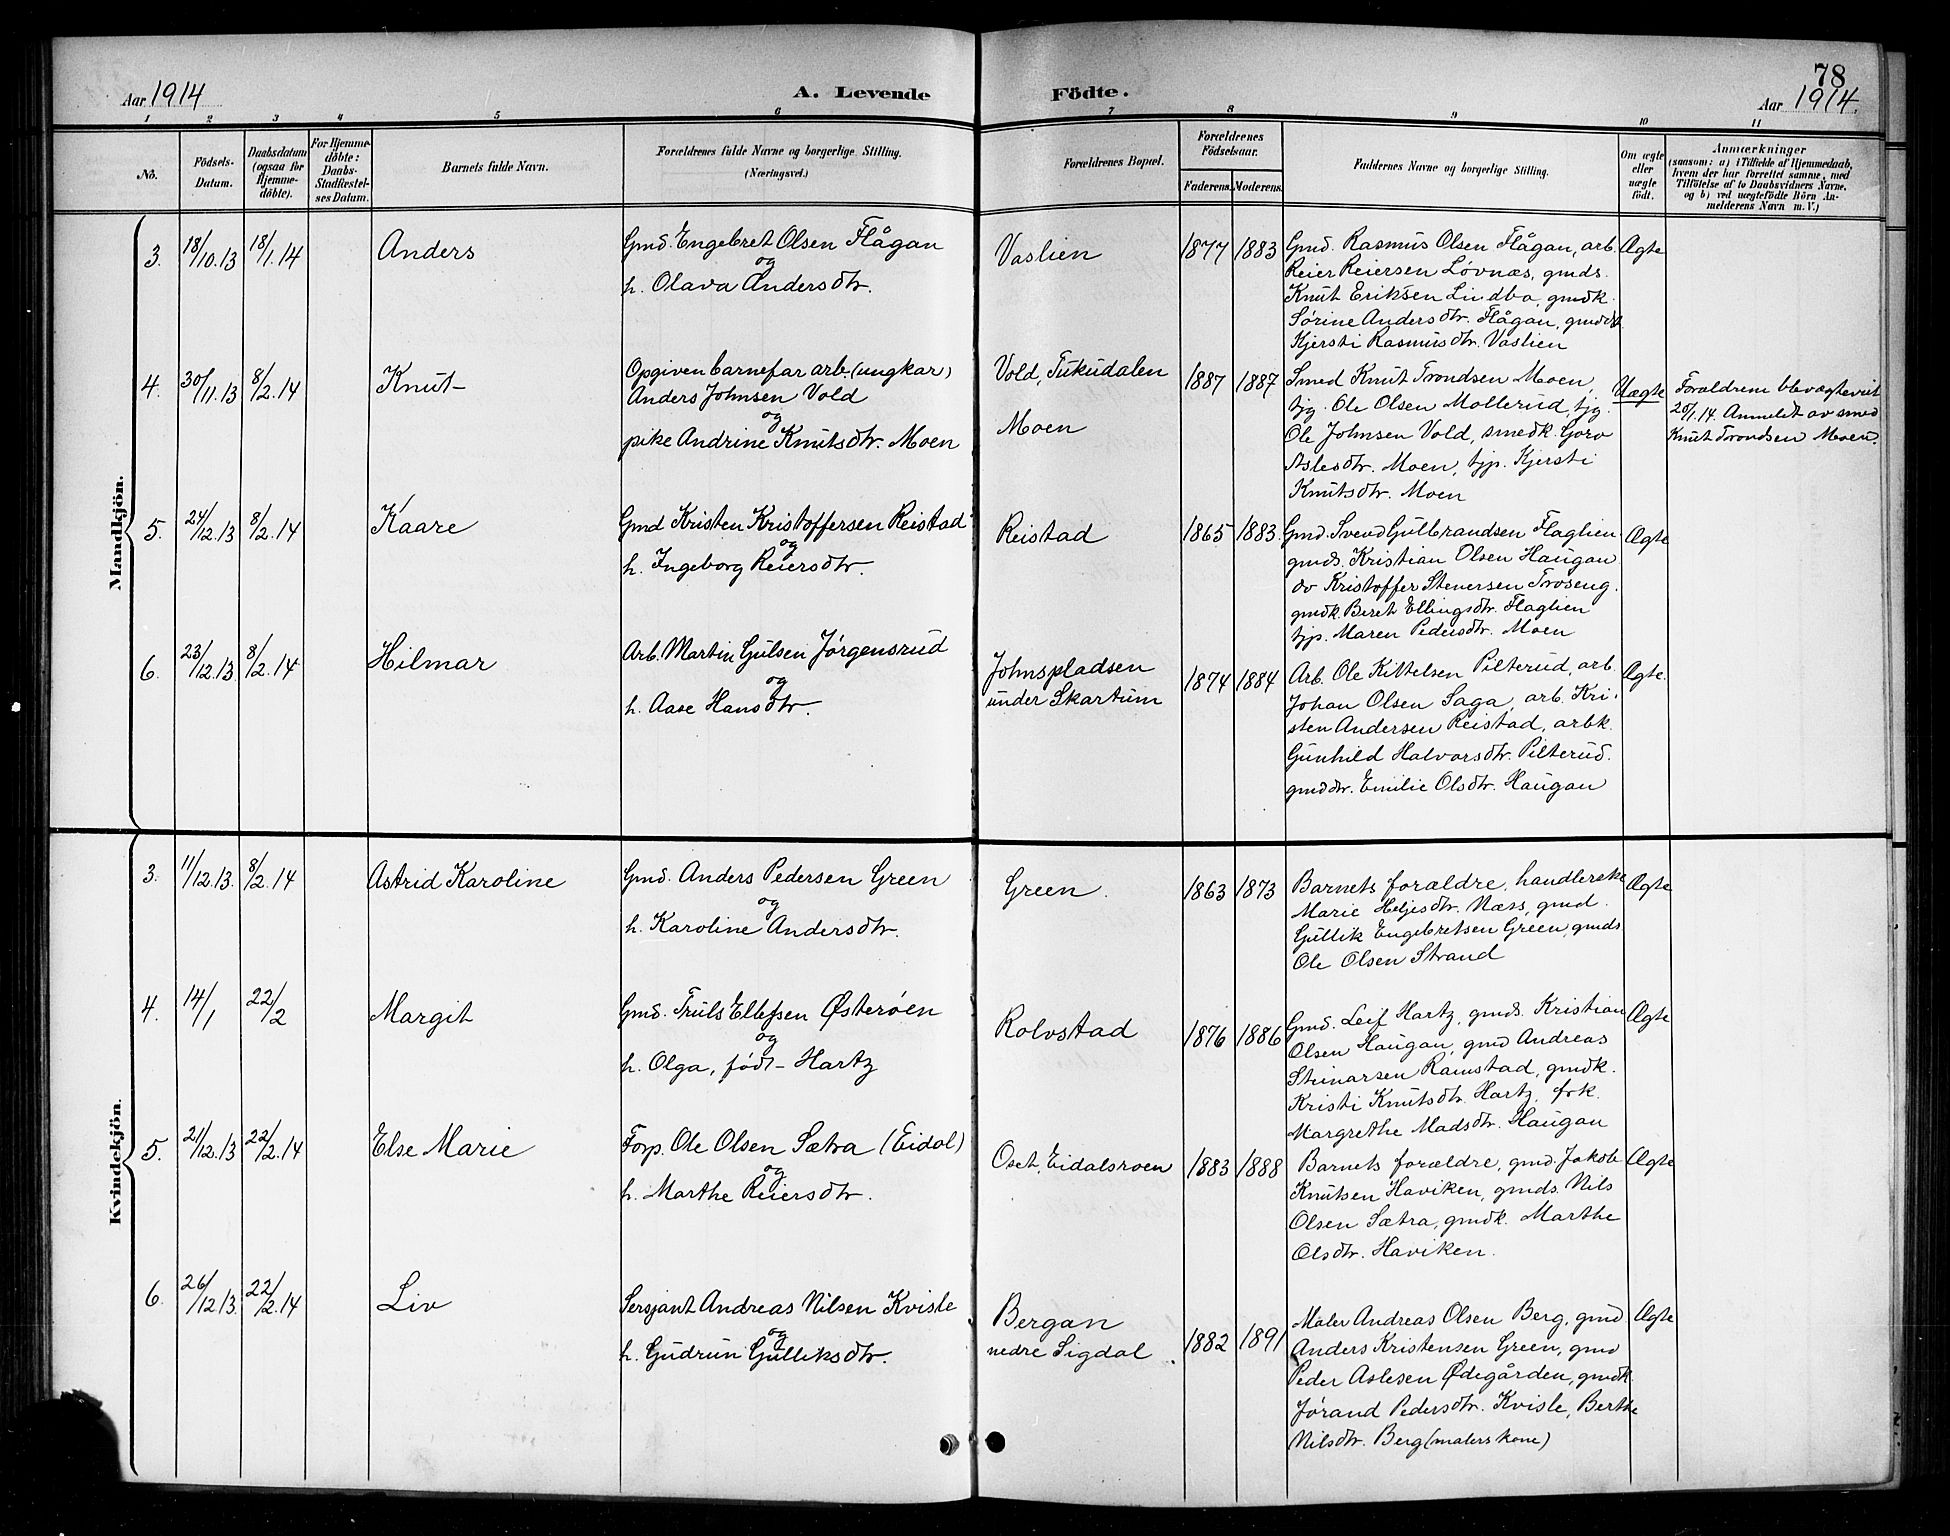 Aar 1914
A. Levende Födte.
78
Aar 1914.
1 2 3 4 5 6 7 8 9 10 11
No.
Födsels-
Datum.
Daabsdatum
(ogsaa for
Hjemme-
döbte).
For Hjemme-
döbte:
Daabs-
Stadfæstel-
ses Datum.
Barnets fulde Navn.
Forældrenes fulde Navne og borgerlige Stilling.
(Næringsvei.)
Forældrenes Bopæl.
Forældrenes
Födselsaar.
Faderens. Moderens.
Faddernes Navne og borgerlige Stilling.
Om ægte
eller
uægte
födt.
Anmærkninger
(saasom: a) i Tilfælde af Hjemmedaab,
hvem der har forrettet samme, med
Tilföielse af to Daabsvidners Navne,
og b) ved uægtefödte Börn An-
melderens Navn m. V.)
Mandkjön.
3. 18/10.13 18/1.14 Anders
Gmd. Engebret Olsen Flågan
og
h. Olava Andersdtr.
Vaslien
1877 1883
Gmd. Rasmus Olsen Flågan, arb.
Reier Reiersen Løvnæs, gmds.
Knut Eriksen Lindbo, gmdk.
Sørine Andersdtr. Flågan, gmddtr.
Kjersti Rasmusdtr. Vaslien
Ægte
4. 30/11.13 8/2.14 Knut
Opgiven barnefar arb. (ungkar)
Anders Johnsen Vold
og
pike Andrine Knutsdtr. Moen
Vold, Tukudalen
Moen
1887 1887
Smed Knut Trondsen Moen,
tjg. Ole Olsen Mollerud, tjg.
Ole Johnsen Vold, smedk. Goro
Aslesdtr. Moen, tjp. Kjersti
Knutsdtr. Moen
Uægte
Forældrene blev ægteviet
25/1.14. Anmeldt av smed
Knut Trondsen Moen.
5. 24/12.13 8/2.14 Kaare
Gmd Kristen Kristoffersen Reistad
og
h. Ingeborg Reiersdtr.
Reistad
1865 1883
Gmd. Svend Gulbrandsen Flaglien
gmds. Kristian Olsen Haugan
do Kristoffer Stenersen Troseng.
gmdk. Beret Ellingsdtr. Flaglien
tjp. Maren Pedersdtr. Moen
Ægte
6. 23/12.13 8/2.14 Hilmar
Arb. Martin Gulsen Jørgensrud
og
h. Aase Hansdtr.
Johnspladsen
under Skartum
1874 1884
Arb. Ole Kittelsen Pilterud, arb.
Johan Olsen Saga, arb. Kri-
sten Andersen Reistad, arbk.
Gunhild Halvorsdtr. Pilterud.
gmddtr. Emilie Olsdtr. Haugan
Ægte.
Kvindekjön.
3. 11/12.13. 8/2.14 Astrid Karoline
Gmd. Anders Pedersen Green
og
h. Karoline Andersdtr.
Green.
1863 1873
Barnets forældre, handlerske
Marie Heljesdtr. Næss, gmd.
Gullik Engebretsen Green, gmds
Ole Olsen Strand
Ægte
4. 14/1 22/2 Margit
Gmd. Truls Ellefsen Østerøen
og
h. Olga, født Hartz
Rolvstad
1876 1886
Gmd. Leif Hartz, gmds. Kristian
Olsen Haugan, gmd Andreas
Steinarsen Ramstad, gmdk.
Kristi Knutsdtr. Hartz, frk.
Margrethe Madsdtr. Haugan
Ægte
5. 21/12.13 22/2.14 Else Marie
Forp. Ole Olsen Sætra (Eidal)
og
h. Marthe Reiersdtr.
Oset, Eidalsroen
1883 1888
Barnets forældre, gmd. Jakob
Knutsen Haviken, gmds. Nils
Olsen Sætra, gmdk. Marthe
Olsdtr. Haviken.
Ægte
6. 26/12.13. 22/2.14 Liv
Sersjant Andreas Nilsen Kvisle
og
h. Gudrun Gulliksdtr.
Bergan
nedre Sigdal.
1882 1891
Maler Andreas Olsen Berg, gmd
Anders Kristensen Green, gmd
Peder Aslesen Ødegården, gmdk.
Jørand Pedersdtr. Kvisle, Berthe
Nilsdtr. Berg (malers kone)
Ægte